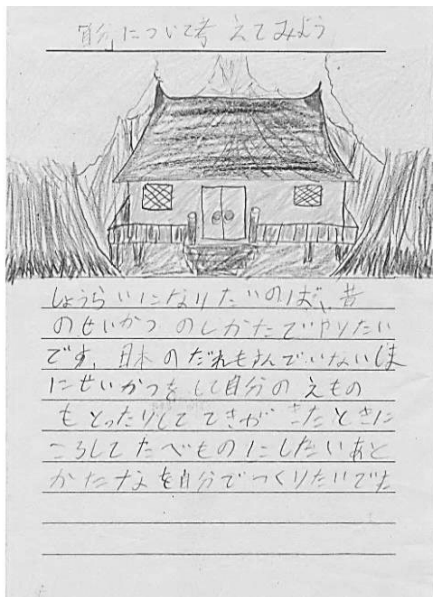 自分について考えてみよう
しょうらいになりたいのは、昔
のせいかつのしかたでやりたい
です、日本のだれもすんでいないしま
にせいかつをして自分のえもの
もとったりしててきがきたときに
ころしてたべものにしたいあと
かたなを自分でつくりたいです